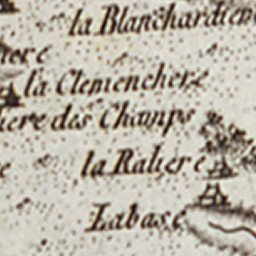 la Blanchardien
iere
la Clemenchere
here des Champs
e
la Raliere
Labase